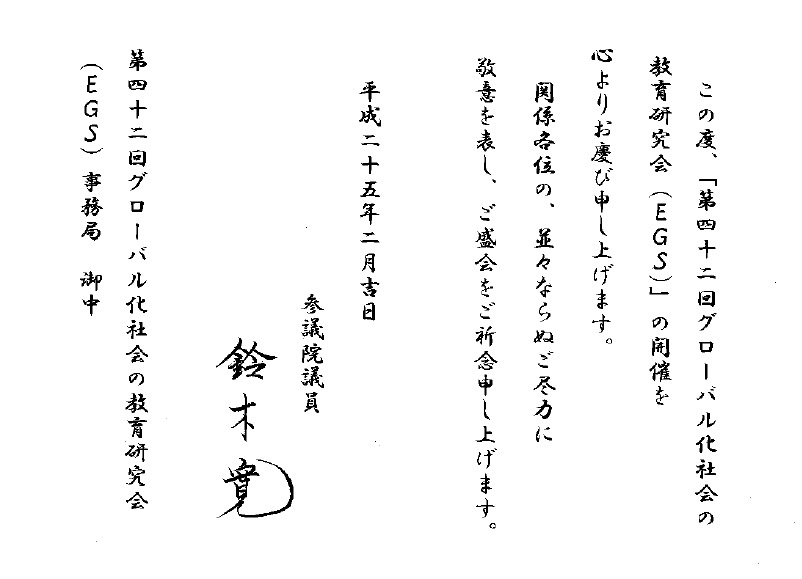 この度、「第四十二回グローバル化社会の
教育研究会（EGS）」の開催を
心よりお慶び申し上げます。
関係各位の、並々ならぬご尽力に
敬意を表し、ご盛会をご祈念申し上げます。
平成二十五年二月吉日
参議院議員
鈴木寛
第四十二回グローバル化社会の教育研究会
（EGS）事務局　御中